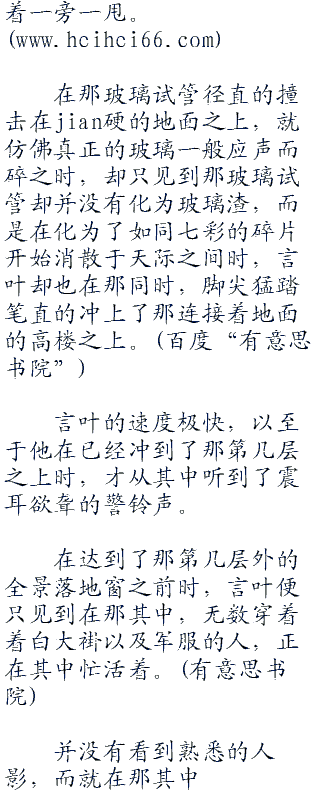 着一旁一甩。
(www.hcihci66.com)
在那玻璃试管径直的撞
击在jian硬的地面之上，就
仿佛真正的玻璃一般应声而
碎之时，却只见到那玻璃试
管却并没有化为玻璃渣，而
是在化为了如同七彩的碎片
开始消散于天际之间时，言
叶却也在那同时，脚尖猛踏
笔直的冲上了那连接着地面
的高楼之上。(百度“有意思
书院”)
言叶的速度极快，以至
于他在已经冲到了那第几层
之上时，才从其中听到了震
耳欲聋的警铃声。
在达到了那第几层外的
全景落地窗之前时，言叶便
只见到在那其中，无数穿着
着白大褂以及军服的人，正
在其中忙活着。(有意思书
院)
并没有看到熟悉的人
影，而就在那其中